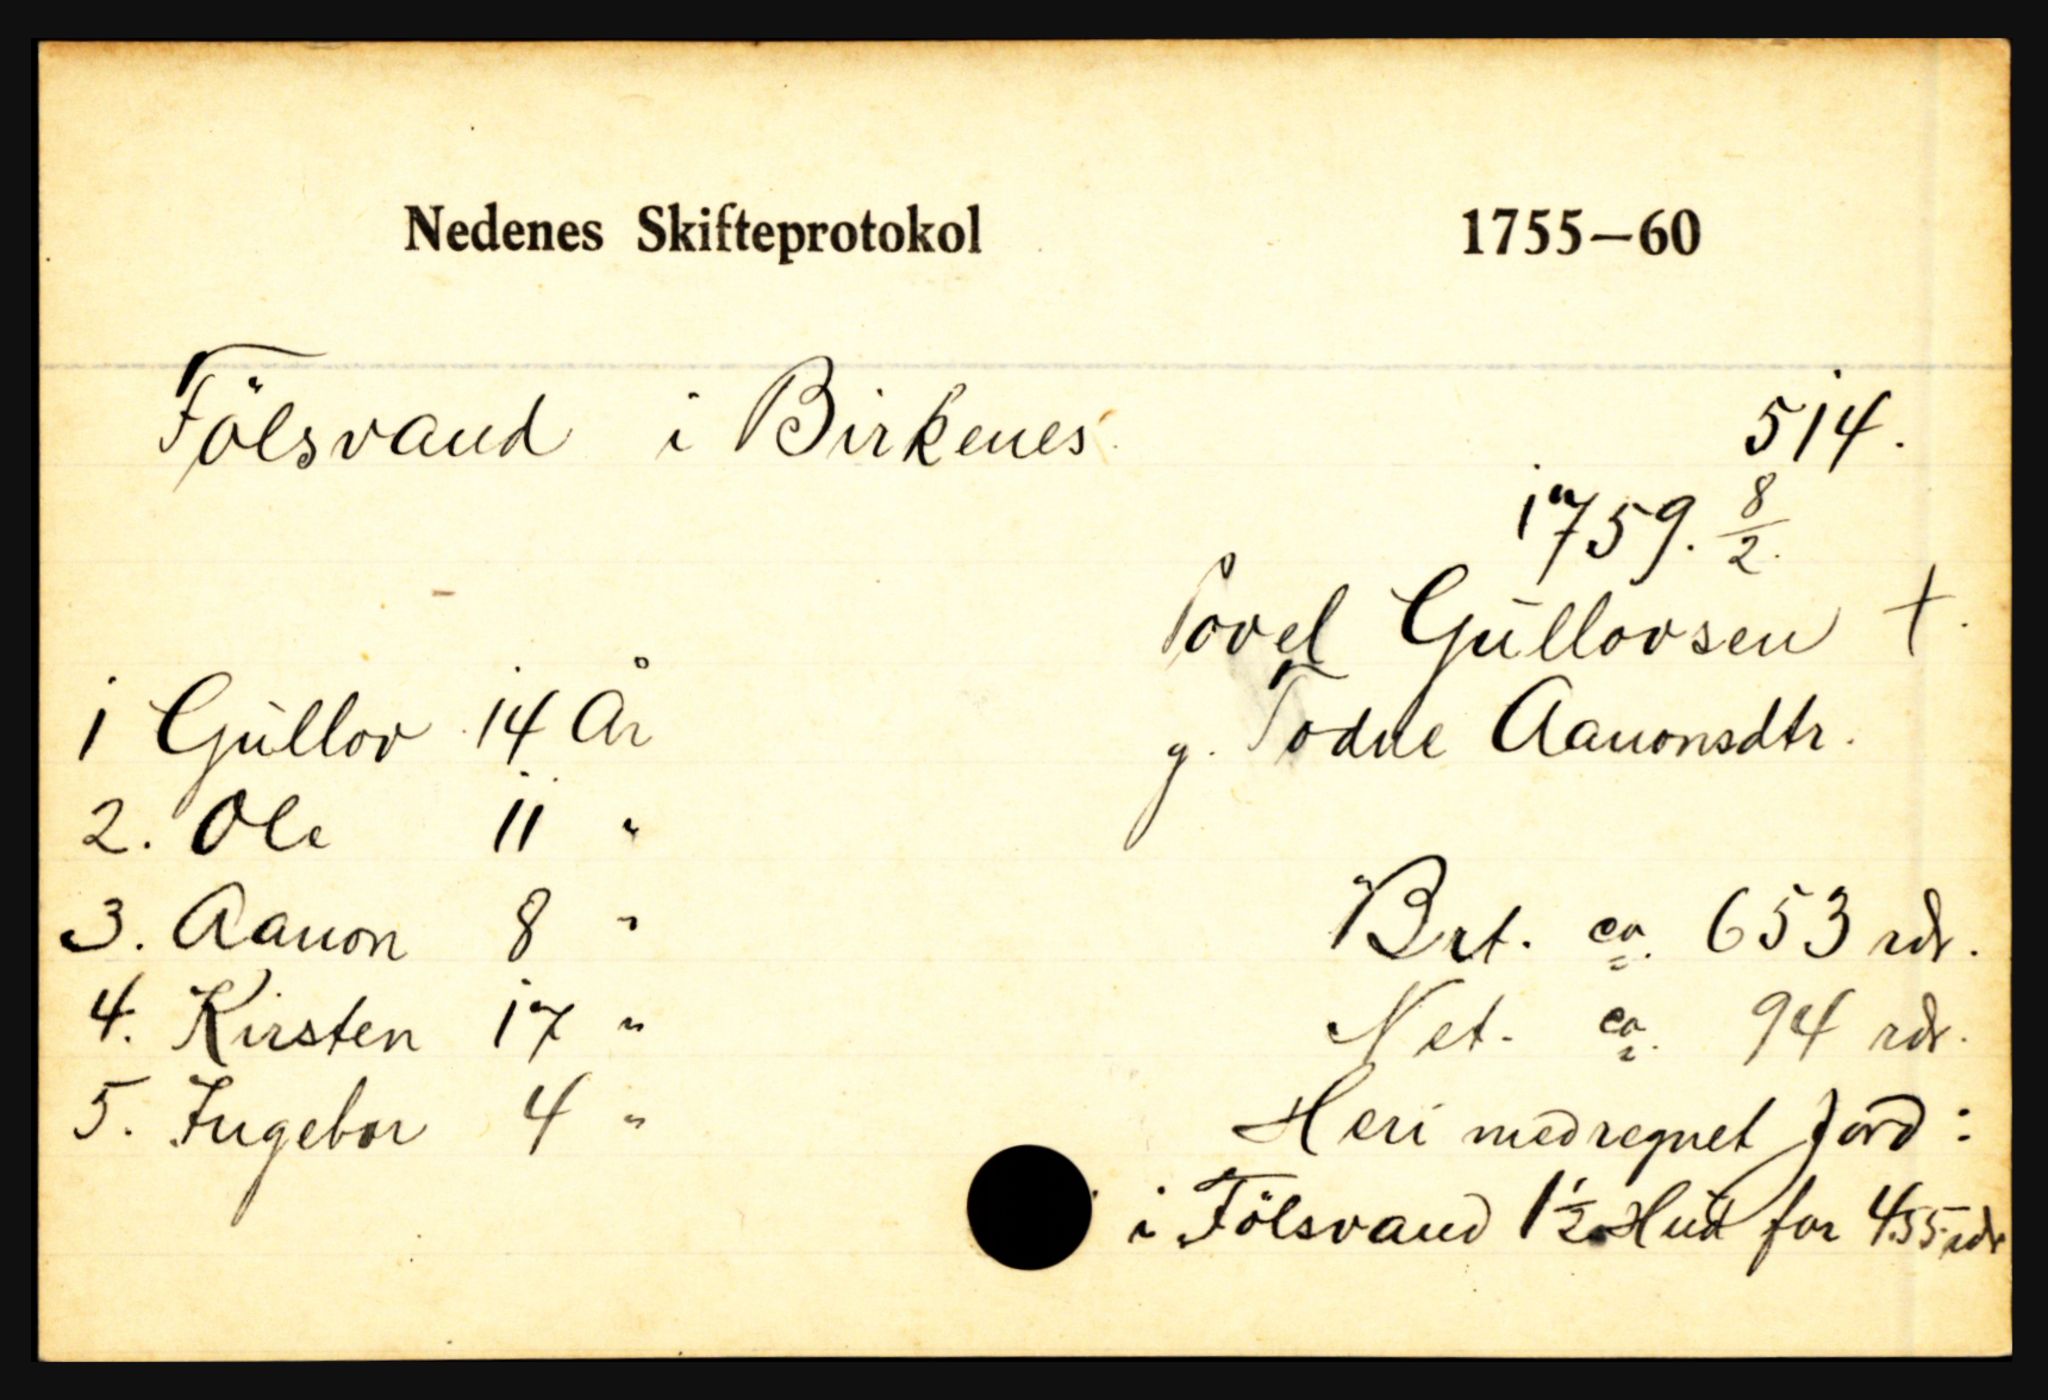 Nedenes Skifteprotokol 1755—60
Fölsvand i Birkenes
514.
1759. 8/2.
Povel Gullovsen †.
1 Gullov 14 År
g. Todne Aanonsdtr.
2. Ole 11 "
3. Aanon 8 "
Brt. ca. 653 rdr.
4. Kirsten 17 "
Net. ca. 94 rdr.
5. Ingebor 4 "
Heri medregnet Jord:
i Fölsvand 1½ Hud for 455 rdr